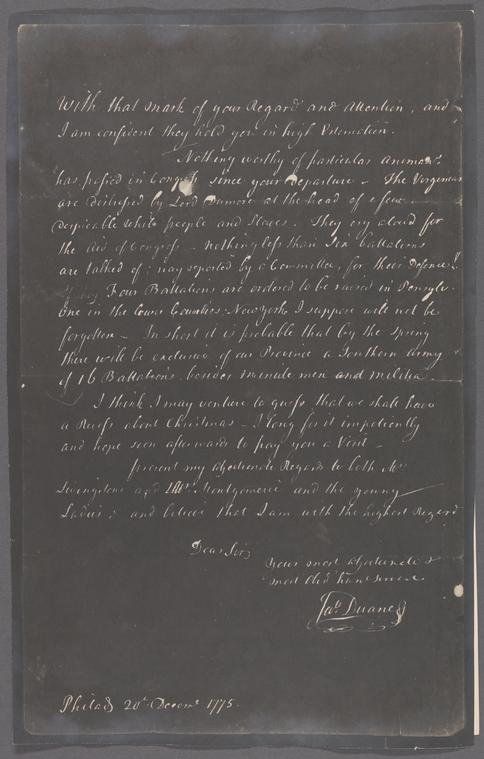 With that mark of your Regard and Attention, and
I am confident they hold you in high Estimation.
Nothing worthy of particular
has passed in Congress since your departure - The Virginians
are distressed by Lord Dunmore at the head of a few
Despicable White people and Slaves. They cry aloud for
the aid of Congress - nothing less than Six battalions
are talked of: nay reported by a Committee, for their Defence
Four Battalions are ordered to be raised in Pensylv.
One in the lower Counties. New York I suppose will not be
forgotten - In short it is probable that by the Spring
there will be exclusive of our Province a Southern army
of 16 Battalions besides minute men and militia
I think I may venture to guess that we shall have
a Recess about Christmas - I long for it impatiently
and hope soon afterwards to pay you a Visit -
present my affectionate Regards to both Mrs
Livingstons and Mrs Montgomerie and the young
Ladies; and believe that I am with the highest Regard
Dear Sir
Your most affectionate &
most Obed humb servant
Jas Duane
Philad 20th Decemr 1775.